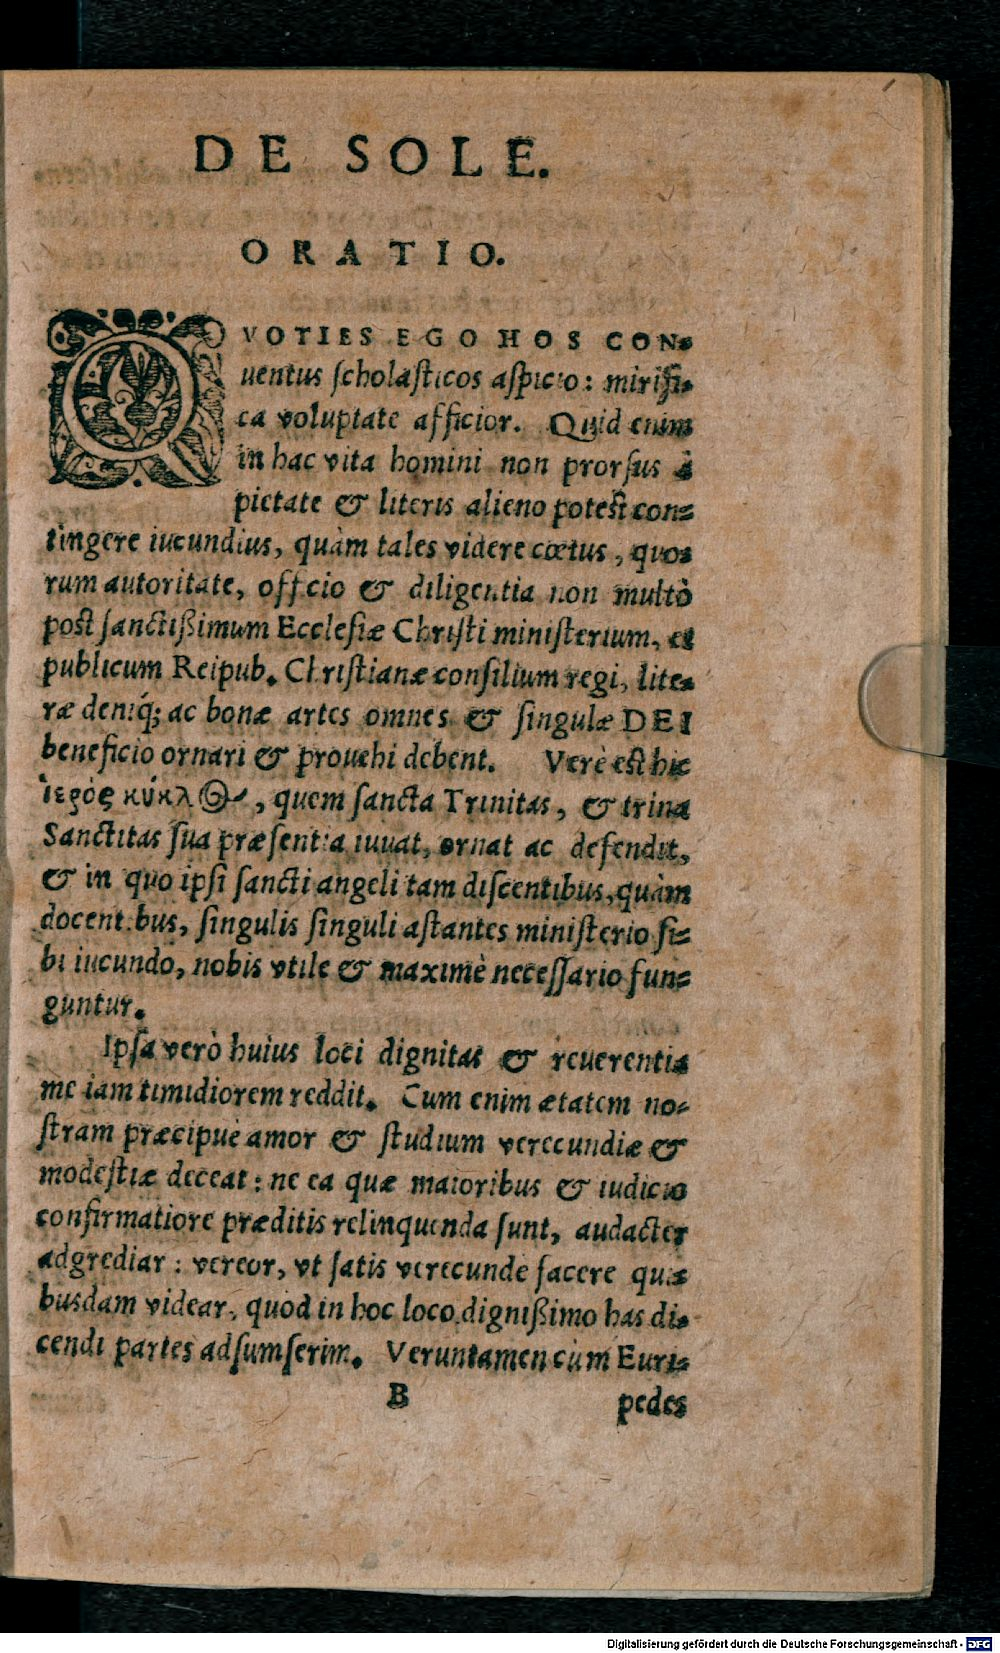 DE SOLE.
ORATIO.
QVOTIES EGO HOS CON-
uentus ſcholaſticos aſpicio: mirifi-
ca voluptate afficior. Quid enim
in hac vita homini non prorſus à
pietate & literis alieno poteſt con-
tingere iucundius, quàm tales videre cœtus, quo-
rum autoritate, officio & diligentia non multò
poſt ſanctißimum Eccleſiæ Chriſti miniſterium, et
publicum Reipub. Chriſtianæ conſilium regi, lite-
ræ deniq́; ac bonæ artes omnes & ſingulæ DEI
beneficio ornari & prouehi debent. Verè eſt hic
ἱερός κύκλος, quem ſancta Trinitas, & trina
Sanctitas ſua præſentia iuuat, ornat ac defendit,
& in quo ipſi ſancti angeli tam diſcentibus, quàm
docentibus, ſingulis ſinguli aſtantes miniſterio ſi-
bi iucundo, nobis vtile & maximè neceſſario fun-
guntur.
Ipſa verò huius loci dignitas & reuerentia
me iam timidiorem reddit. Cum enim ætatem no-
ſtram præcipuè amor & ſtudium verecundiæ &
modeſtiæ deceat: ne ea quæ maioribus & iudicio
confirmatiore præditis relinquenda ſunt, audacter
adgrediar: vereor, vt ſatis verecunde facere qui-
busdam videar, quod in hoc loco digniſſimo has di-
cendi partes adſumſerim. Veruntamen cùm Euri-
B
pedes
Digitalisierung gefördert durch die Deutsche Forschungsgemeinschaft - DFG